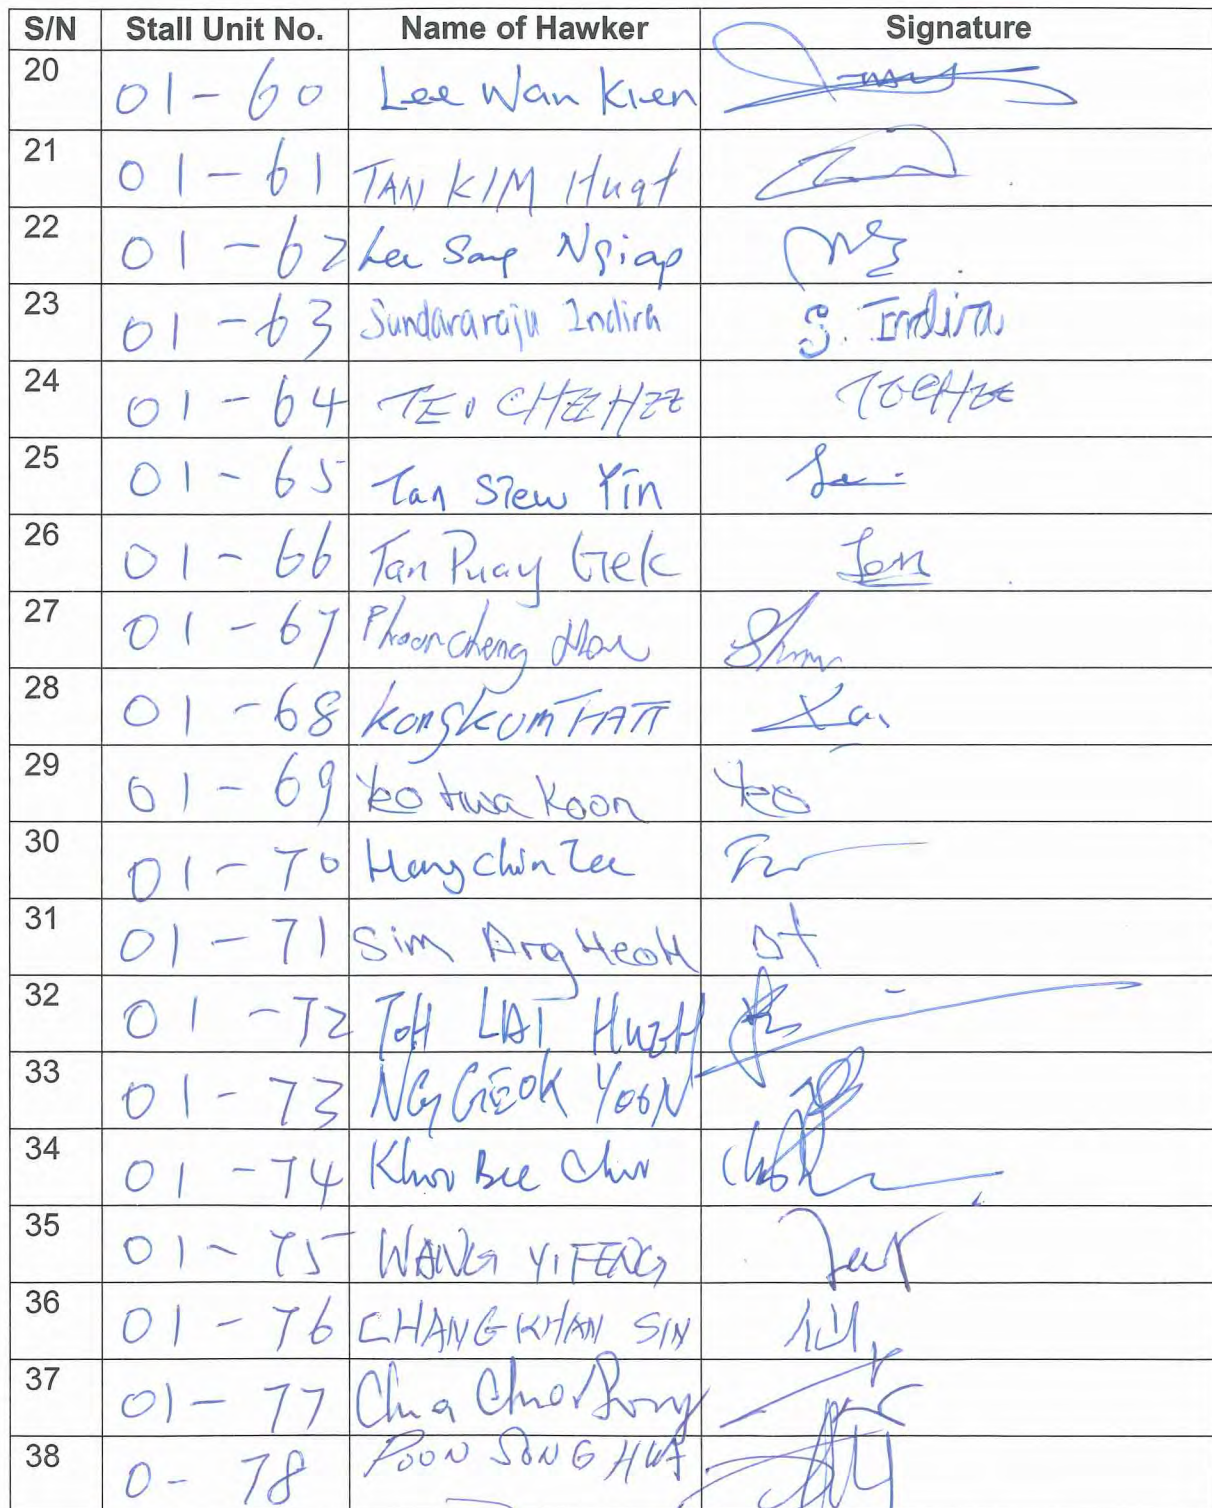 S/N Stall Unit No. Name of Hawker Signature
20 01-60 Lee Wan Kien
21 01-61 TAN KIM Huat
22 01-62 Lee Ngiap
23 01-63 Sundararaju Indira S. Indira
24 01-64 TEO CHEE HEE
25 01-65 Tan Siew Yin
26 01-66 Tan Puay Gek
27 01-67 Phoon Cheng
28 01-68 Kong KUM FATT
29 01-69 Yeo Koon Yeo
30 01-70 Chin
31 01-71 Sim Ang HeoH
32 01-72 TOH LAI HUEH
33 01-73 NG GEOK YOON
34 01-74 Khor Bee
35 01-75 WANG YIFENG
36 01-76 CHANG KHAN SIN
37 01-77 Chua
38 0-78 POON SONG HWA